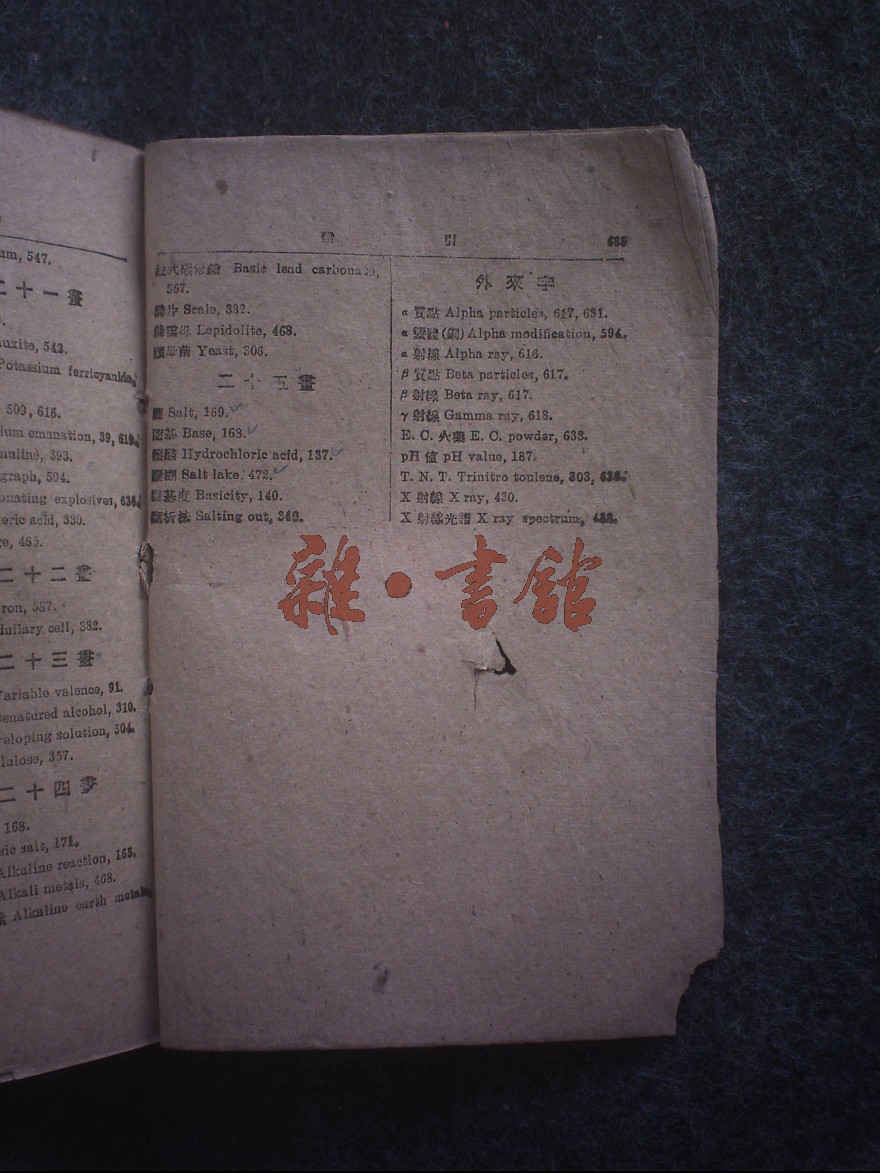 um, 547.
二十一畫
auxite, 543.
Potassium ferricyanide,
509, 616.
ium emanation, 39, 619.
muline, 393.
graph, 504.
onating explosives, 636.
eric acid, 330.
e, 465.
二十二畫
ron, 557.
dullary cell, 382.
二十三畫
Variable valence, 91.
Denatured alcohol, 310.
veloping solution, 504.
llulose, 357.
二十四畫
168.
sic salt, 171.
Alkaline reaction, 165.
Alkali metals, 468.
Alkaline earth metals,
索 引 685
Basic lead carbonate,
567.
Scale, 382.
Lepidolite, 468.
母菌 Yeast, 306.
二十五畫
Salt, 169.
鹽基 Base, 168.
鹽酸 Hydrochloric acid, 137.
鹽湖 Salt lake, 472.
鹽基度 Basicity, 140.
鹽析法 Salting out, 346.
外來字
α 質點 Alpha particles, 617, 631.
α 變體(鋼) Alpha modification, 594.
α 射線 Alpha ray, 616.
β 質點 Beta particles, 617.
β 射線 Beta ray, 617.
γ 射線 Gamma ray, 618.
E. C. 火藥 E. C. powder, 638.
pH 值 pH value, 187.
T. N. T. Trinitro toulene, 303, 636.
X 射線 X ray, 430.
X 射線光譜 X ray spectrum,
雜·書館